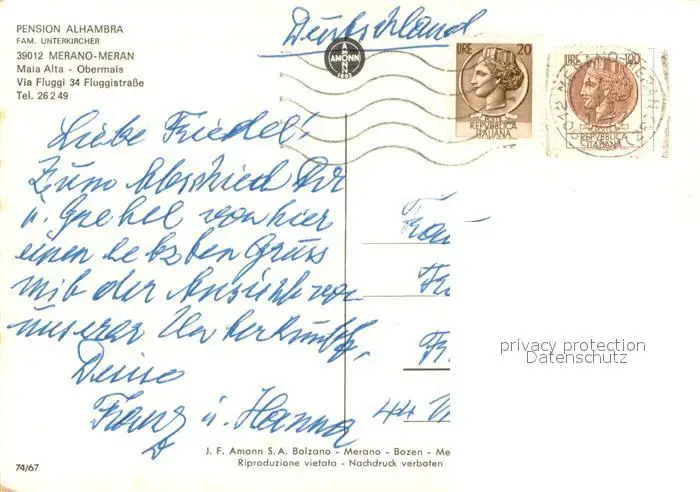 PENSION ALHAMBRA
FAM. UNTERKIRCHER
39012 MERANO-MERAN
Maia Alta - Obermais
Via Fluggi 34 Fluggistraße
Tel. 26 2 49
Deutschland
AMONN
LIRE 20
REPVBBLICA
ITALIANA
LIRE 100
REPVBBLICA
ITALIANA
Liebe Friedel!
Zum Abschied Dir
u. von hier
einen letzten Gruss
mit der Ansicht von
unserer Unterkunft,
Deine
Franz u. Hanna
Frau
Fr
44
privacy protection
Datenschutz
J. F. Amonn S.A. Bolzano - Merano - Bozen - Me
Riproduzione vietata - Nachdruck verboten
74/67